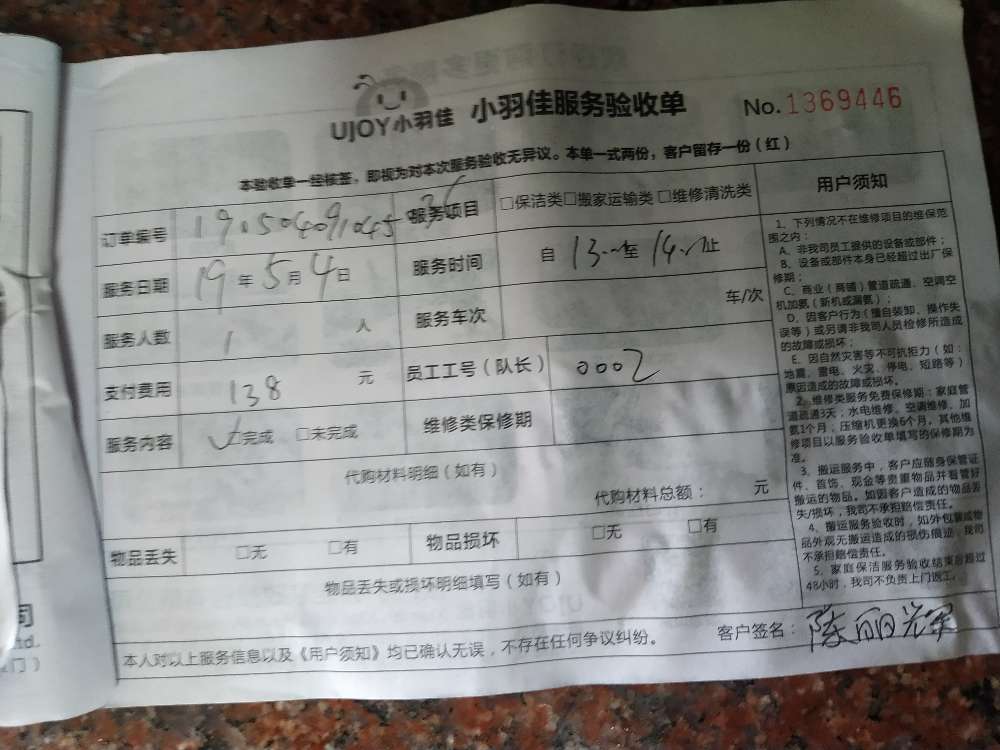 UJOY小羽佳 小羽佳服务验收单 No.1369446
本验收单一经核签，即视为对本次服务验收无异议。本单一式两份，客户留存一份（红）
订单编号 服务项目 □保洁类□搬家运输类□维修清洗类
服务日期 19年5月4日 服务时间 自 13 至 14 止
服务人数 1 人 服务车次 车/次
支付费用 138 元 员工工号（队长） 0002
服务内容 □完成 □未完成 维修类保修期
代购材料明细（如有）
代购材料总额： 元
物品丢失 □无 □有 物品损坏 □无 □有
物品丢失或损坏明细填写（如有）
本人对以上服务信息以及《用户须知》均已确认无误，不存在任何争议纠纷。 客户签名：
用户须知
1、下列情况不在维修项目的维保范
围之内：
A、非我司员工提供的设备或部件；
B、设备或部件本身已经超过出厂保
修期；
C、商业（商铺）管道疏通、空调空
机加氨（新机或漏氨）；
D、因客户行为（擅自装卸、操作失
误等）或另请非我司人员检修所造成
的故障或损坏；
E、因自然灾害等不可抗拒力（如：
地震、雷电、火灾、停电、短路等）
原因造成的故障或损坏。
2、维修类服务免费保修期：家庭管
道疏通3天；水电维修、空调维修、加
氨1个月；压缩机更换6个月。其他维
修项目以服务验收单填写的保修期为
准。
3、搬运服务中，客户应随身保管证
件、首饰、现金等贵重物品并看管好
搬运的物品。如因客户造成的物品丢
失/损坏，我司不承担赔偿责任。
4、搬运服务验收时，如外包装或物
品外观无搬运造成的损伤痕迹，我司
不承担赔偿责任。
5、家庭保洁服务验收结束后超过
48小时，我司不负责上门返工。
司
td.
门）